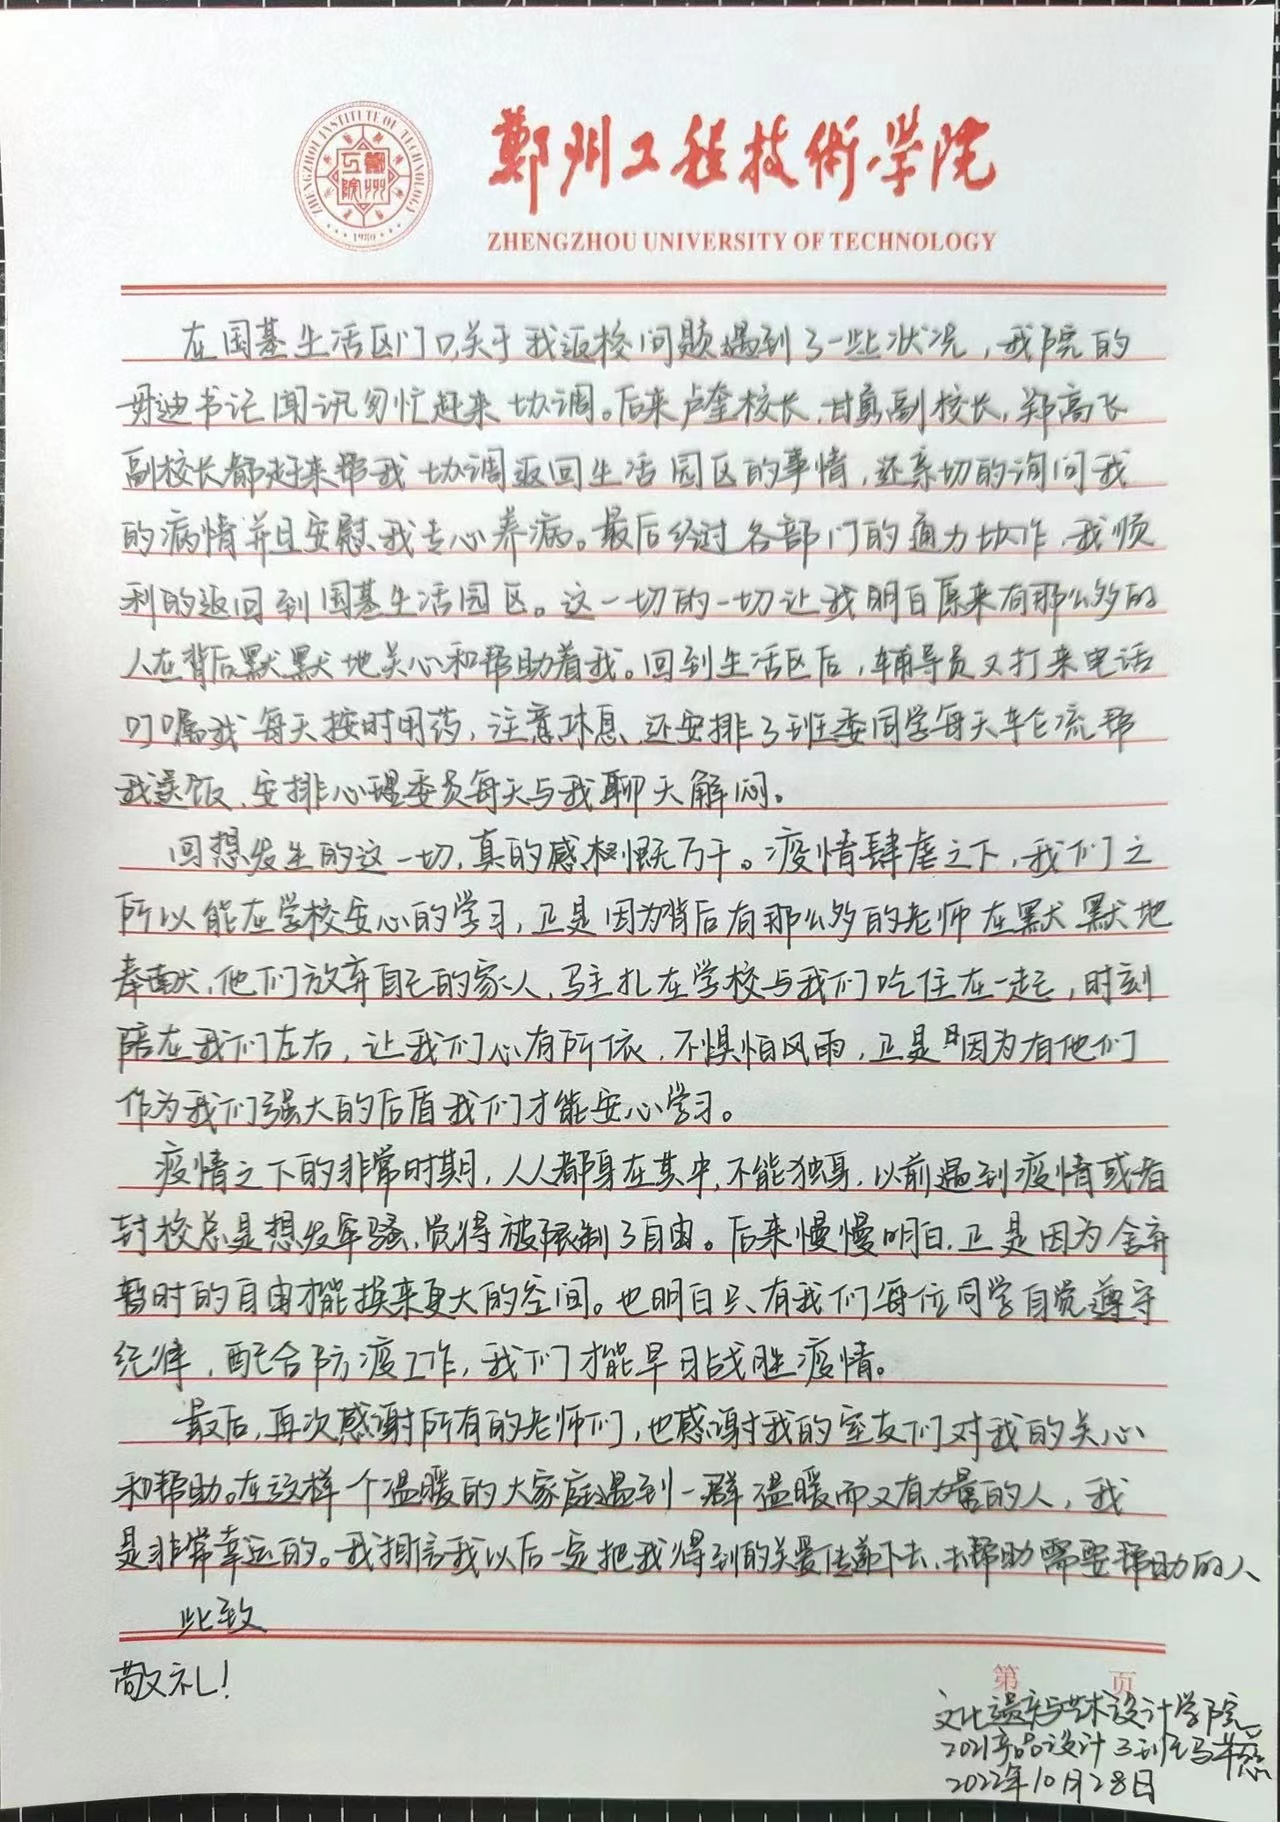 ZHENGZHOU INSTITUTE OF TECHNOLOGY
1980
郑州工程技術学院
ZHENGZHOU UNIVERSITY OF TECHNOLOGY
在国基生活区门口,关于我返校问题遇到了一些状况,我院的
毋迪书记闻讯匆忙赶来协调。后来卢奎校长,甘勇副校长,郑高飞
副校长都赶来帮我协调返回生活园区的事情,还亲切的询问我
的病情并且安慰我专心养病。最后经过各部门的通力协作,我顺
利的返回到国基生活园区。这一切的一切让我明白原来有那么多的
人在背后默默地关心和帮助着我。回到生活区后,辅导员又打来电话
叮嘱我每天按时用药,注意休息,还安排了班委同学每天轮流帮
我送饭,安排心理委员每天与我聊天解闷。
回想发生的这一切,真的感慨万千。疫情肆虐之下,我们之
所以能在学校安心的学习,正是因为背后有那么多的老师在默默地
奉献,他们放弃自己的家人,驻扎在学校与我们吃住在一起,时刻
陪在我们左右,让我们心有所依,不惧怕风雨,正是因为有他们
作为我们强大的后盾我们才能安心学习。
疫情之下的非常时期,人人都身在其中,不能独身,以前遇到疫情或者
封校总是想发牢骚,觉得被限制了自由。后来慢慢明白,正是因为舍弃
暂时的自由才能换来更大的空间。也明白只有我们每位同学自觉遵守
纪律,配合防疫工作,我们才能早日战胜疫情。
最后,再次感谢所有的老师们,也感谢我的室友们对我的关心
和帮助。在这样一个温暖的大家庭遇到一群温暖而又有力量的人,我
是非常幸运的。我相信我以后一定把我得到的关爱传递下去,去帮助需要帮助的人
此致
敬礼!
第 页
文化遗产与艺术设计学院
2021产品设计3班马
2022年10月28日